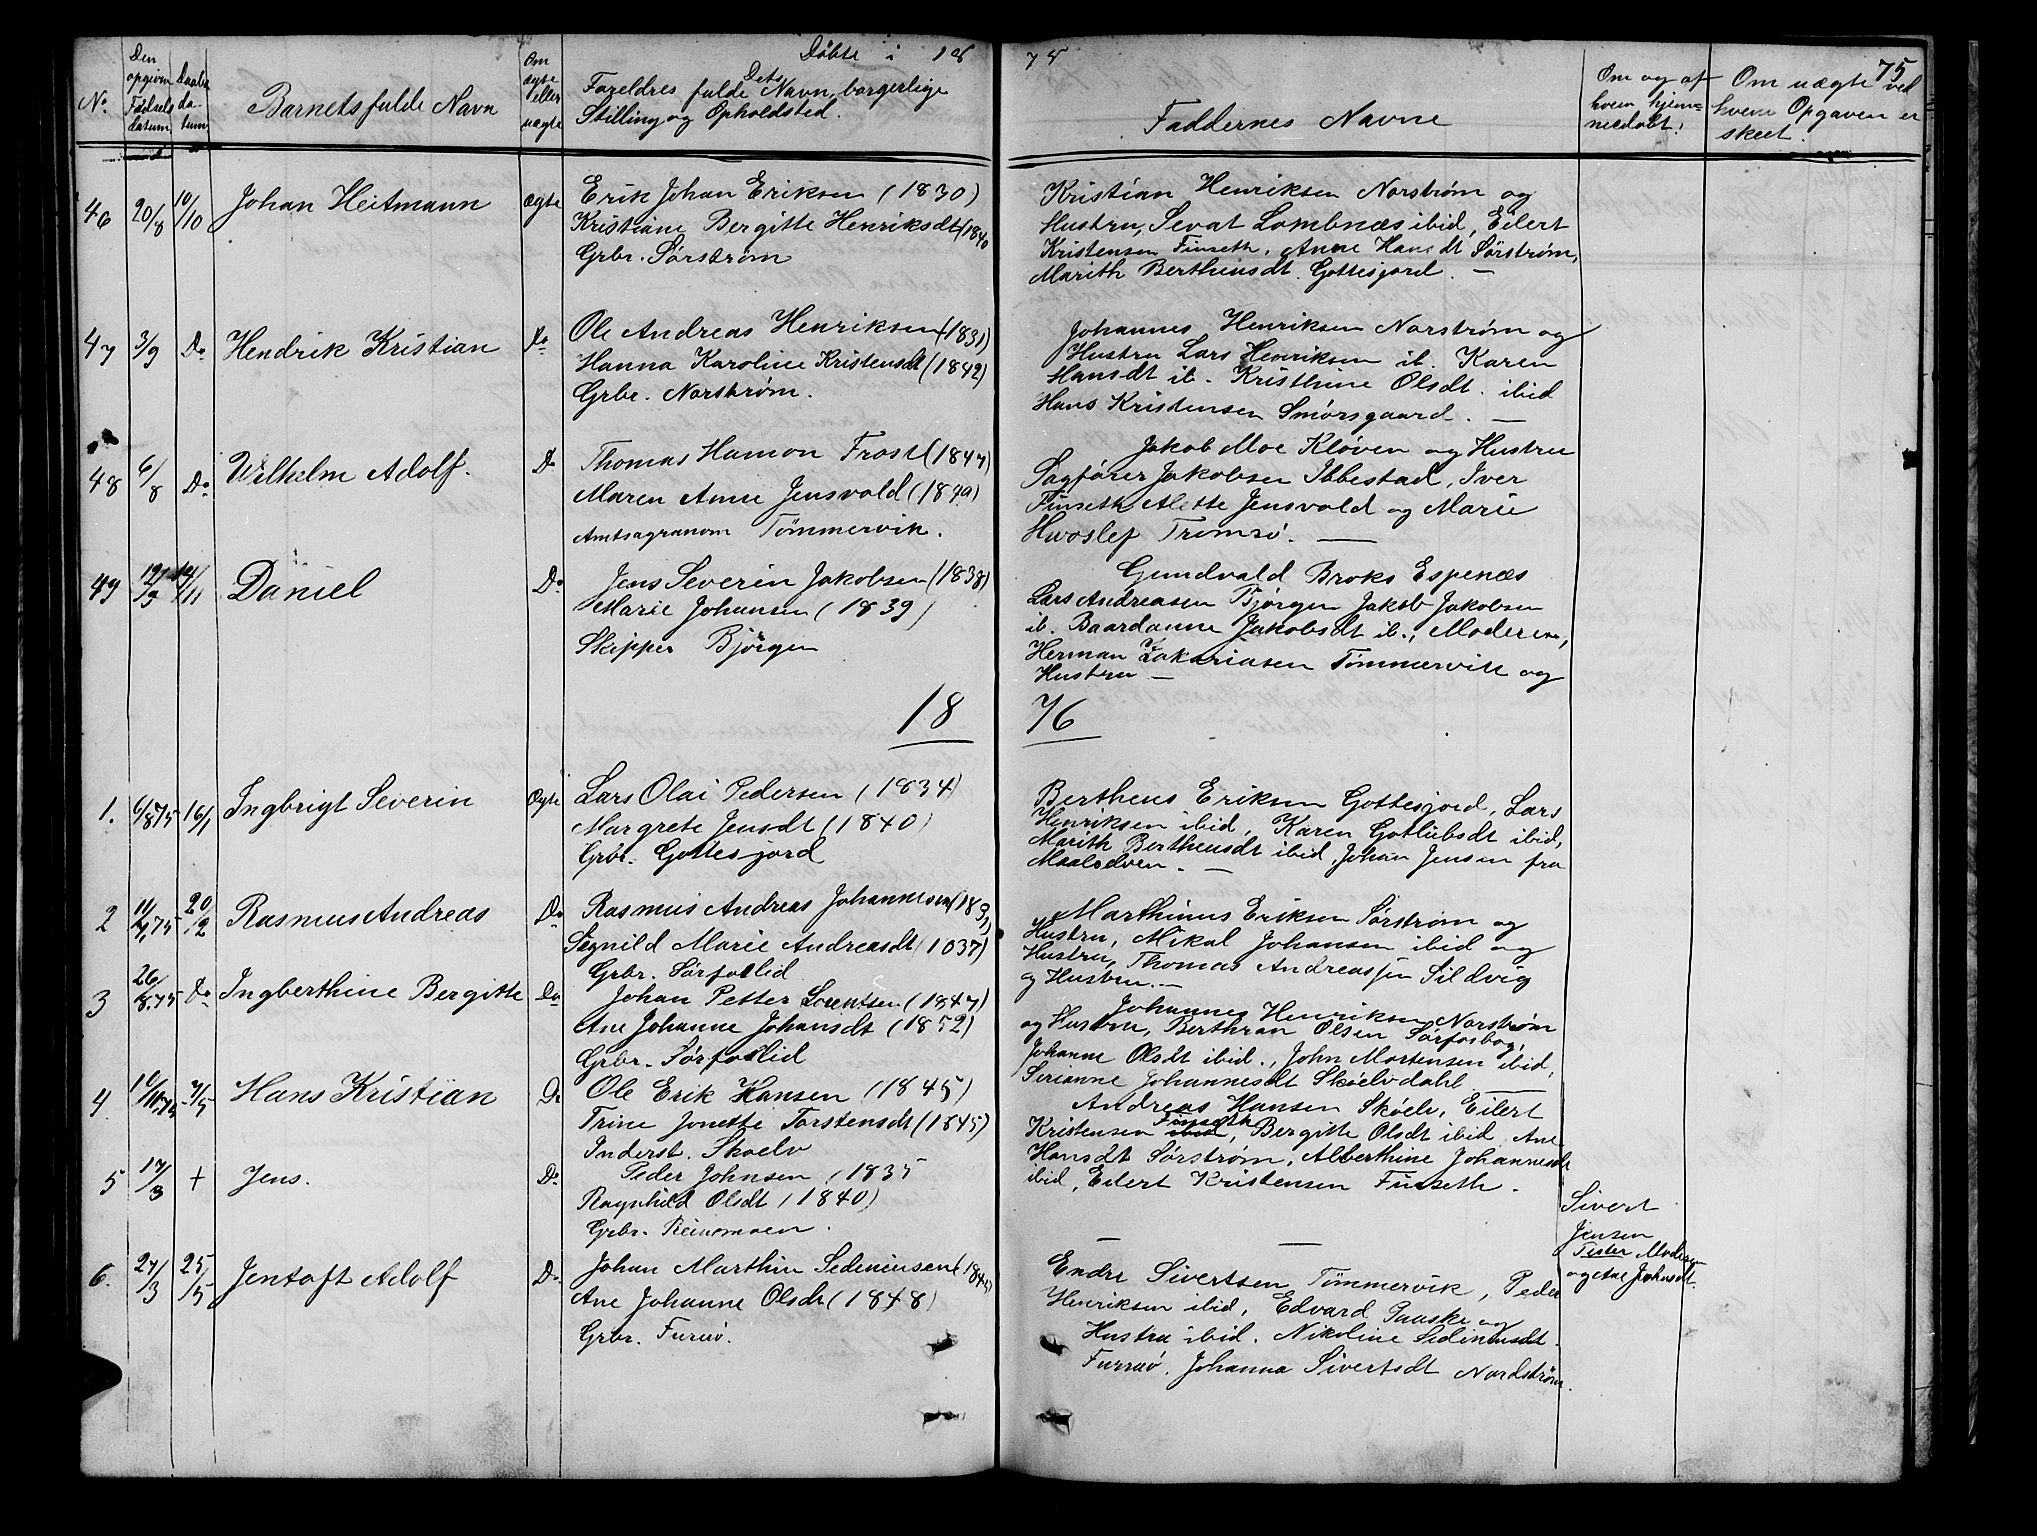 Døbte i 18 75
75
No
Den opgivne Fødselsdatum
Daabsdatum
Barnets fulde Navn
Om ægte eller uægte
Dets Foreldres fulde Navn, borgerlige
Stilling og Opholdsted.
Faddernes Navne
Om og af hvem hjemmedøbt.
Om uægte ved hvem Opgaven er skeet.
46 20/8 10/10 Johan Heitmann ægte Erik Johan Eriksen (1830)
Kristiane Bergitte Henriksdt (1840
Grbr. Sørstrøm
Kristian Henriksen Norstrøm og
Hustru, Sevat Lombnæs ibid, Eilert
Kristensen Finseth, Anne Hansdt Sørstrøm,
Marith Bertheusdt Gottesjord. —
47 3/9 Do Hendrik Kristian Do Ole Andreas Henriksen (1831)
Hanna Karoline Kristensdt (1842)
Grbr. Norstrøm.
Johannes Henriksen Norstrøm og
Hustru Lars Henriksen ib. Karen
Hansdt ib. Kristhine Olsdt. ibid
Hans Kristensen Smørsgaard. —
48 6/8 Do Wilhelm Adolf. Do Thomas Hamon Frost (1847)
Maren Anne Jensvold (1849)
Amtsagronom Tømmervik.
Jakob Moe Kløven og Hustru
Sagfører Jakobsen Ibbestad, Iver
Finseth, Alette Jensvold og Marie
Hvoslef Tromsø. —
49 12/9 14/11 Daniel Do Jens Severin Jakobsen (1838)
Marie Johansen (1839)
Skipper Bjørgen
Gundvald Broks Espenæs
Lars Andreasen Bjørgen Jakob Jakobsen
ib. Baardanne Jakobsdt ib., Moderen,
Herman Zakariasen Tømmervik og
Hustru —
18 76
1. 6/8 75 16/1 Ingbrigt Severin Ægte Lars Olai Pedersen (1834)
Margrete Jensdt (1840)
Grbr. Gottesjord
Bertheus Eriksen Gottesjord, Lars
Henriksen ibid, Karen Gotliebsdt ibid,
Marith Bertheusdt ibid, Johan Jensen fra
Maalselven. —
2 11/4 75 20/2 Rasmus Andreas Do Rasmus Andreas Johannesen (1831)
Segnild Marie Andreasdt (1037)
Grbr. Sørfoslid
Marthinus Eriksen Sørstrøm og
Hustru, Mikal Johansen ibid og
Hustru, Thomas Andreassen Sildvig
og Hustru. —
3 26/8 75 Do Ingberthine Bergitte Do Johan Petter Lorentsen (1847)
Ane Johanne Johansdt (1852)
Grbr. Sørfoslid
Johannes Henriksen Norstrøm
og Hustru, Berthran Olsen Sørfosbog,
Johanne Olsdt ibid., John Mortensen ibid,
Serianne Johannesdt Skøelvdahl
4 10/10 75 7/5 Hans Kristian Do Ole Erik Hansen (1845)
Trine Jonette Torstensdt (1845)
Inderst. Skoelv
Andreas Hansen Skøelv, Eilert
Kristensen ibid Finseth, Bergitte Olsdt ibid, Ane
Hansdt Sørstrøm, Alberthine Johannesdt
ibid, Eilert Kristensen Finseth.
5 17/3 + Jens. Do Peder Johnsen (1835
Ragnhild Olsdt (1840)
Grbr. Reinsmoen.
—
Sivert
Jensen
Tister Moderen
og Ane Johnsdt.
6. 27/3 25/5 Jentoft Adolf Do Johan Marthin Sedeniusen (184
Ane Johanne Olsdt (1848)
Grbr. Furuø.
Endre Sivertsen Tømmervik, Peder
Henriksen ibid, Edvard Paaske og
Hustru ibid. Nikoline Sedeniusdt.
Furuø. Johanna Sivertsdt Nordstrøm.